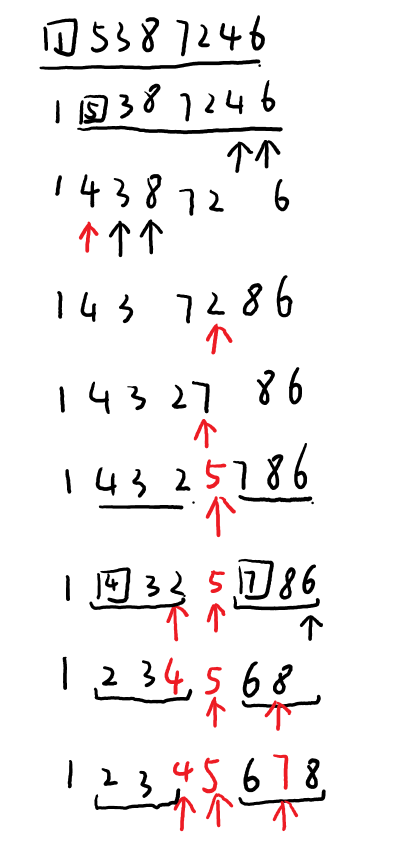 1 5 3 8 7 2 4 6
1 5 3 8 7 2 4 6
1 4 3 8 7 2 6
1 4 3 7 2 8 6
1 4 3 2 7 8 6
1 4 3 2 5 7 8 6
1 4 3 2 5 7 8 6
1 2 3 4 5 6 8
1 2 3 4 5 6 7 8